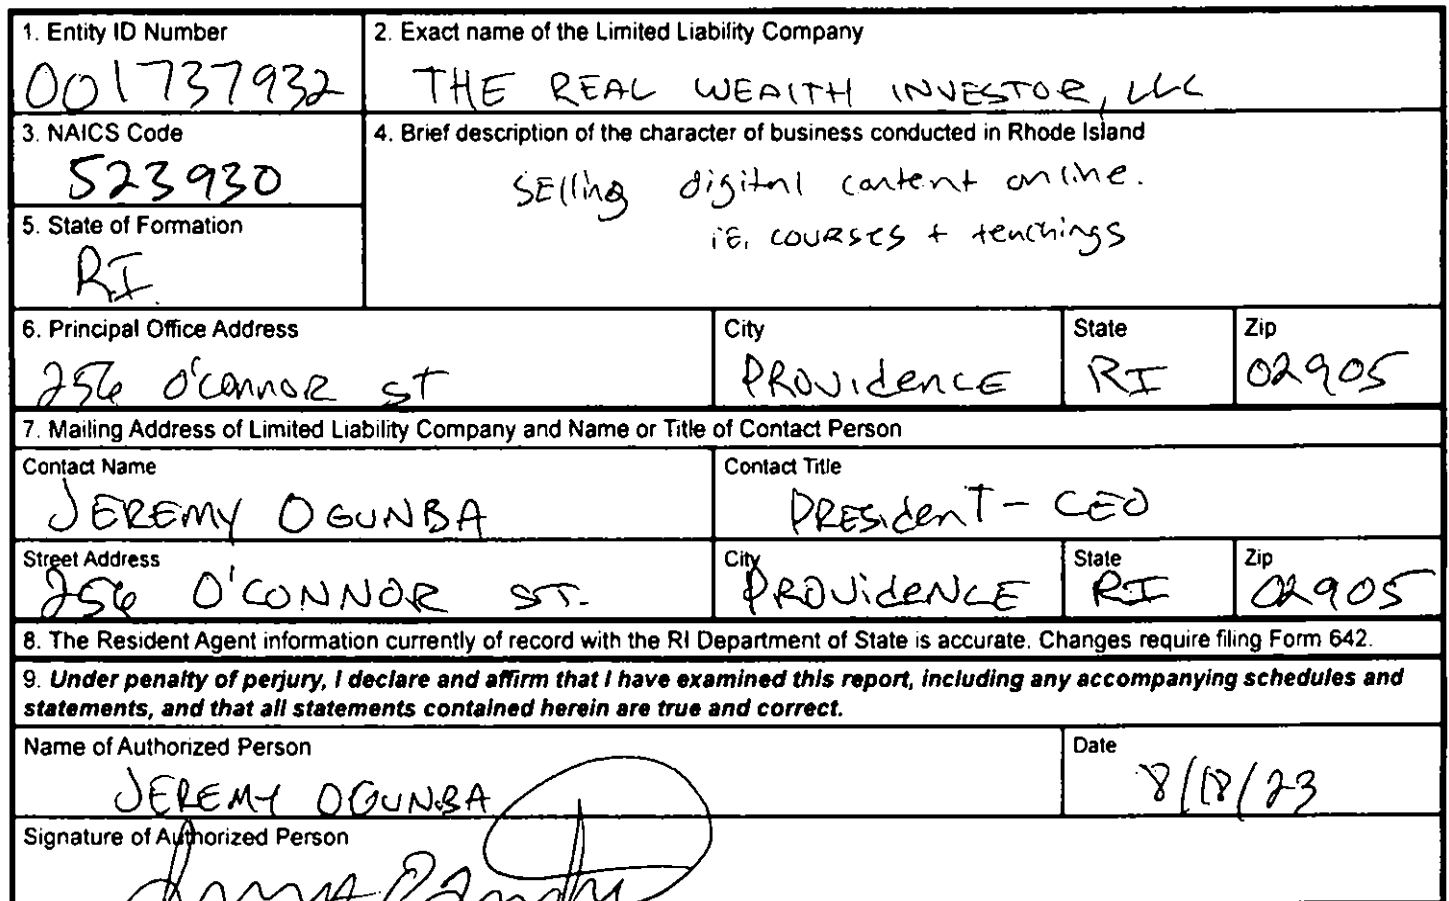 1. Entity ID Number
001737932
2. Exact name of the Limited Liability Company
THE REAL WEALTH INVESTOR, LLC
3. NAICS Code
523930
4. Brief description of the character of business conducted in Rhode Island
SElling digital content online.
iE, COURSES + teachings
5. State of Formation
RI.
6. Principal Office Address
256 O'CONNOR ST
City
PROVIdENCE
State
RI
Zip
02905
7. Mailing Address of Limited Liability Company and Name or Title of Contact Person
Contact Name
JEREMY OGUNBA
Contact Title
PRESidenT - CEO
Street Address
256 O'CONNOR ST.
City
PROVidENCE
State
RI
Zip
02905
8. The Resident Agent information currently of record with the RI Department of State is accurate. Changes require filing Form 642.
9. Under penalty of perjury, I declare and affirm that I have examined this report, including any accompanying schedules and
statements, and that all statements contained herein are true and correct.
Name of Authorized Person
JEREMY OGUNBA
Date
8/18/23
Signature of Authorized Person